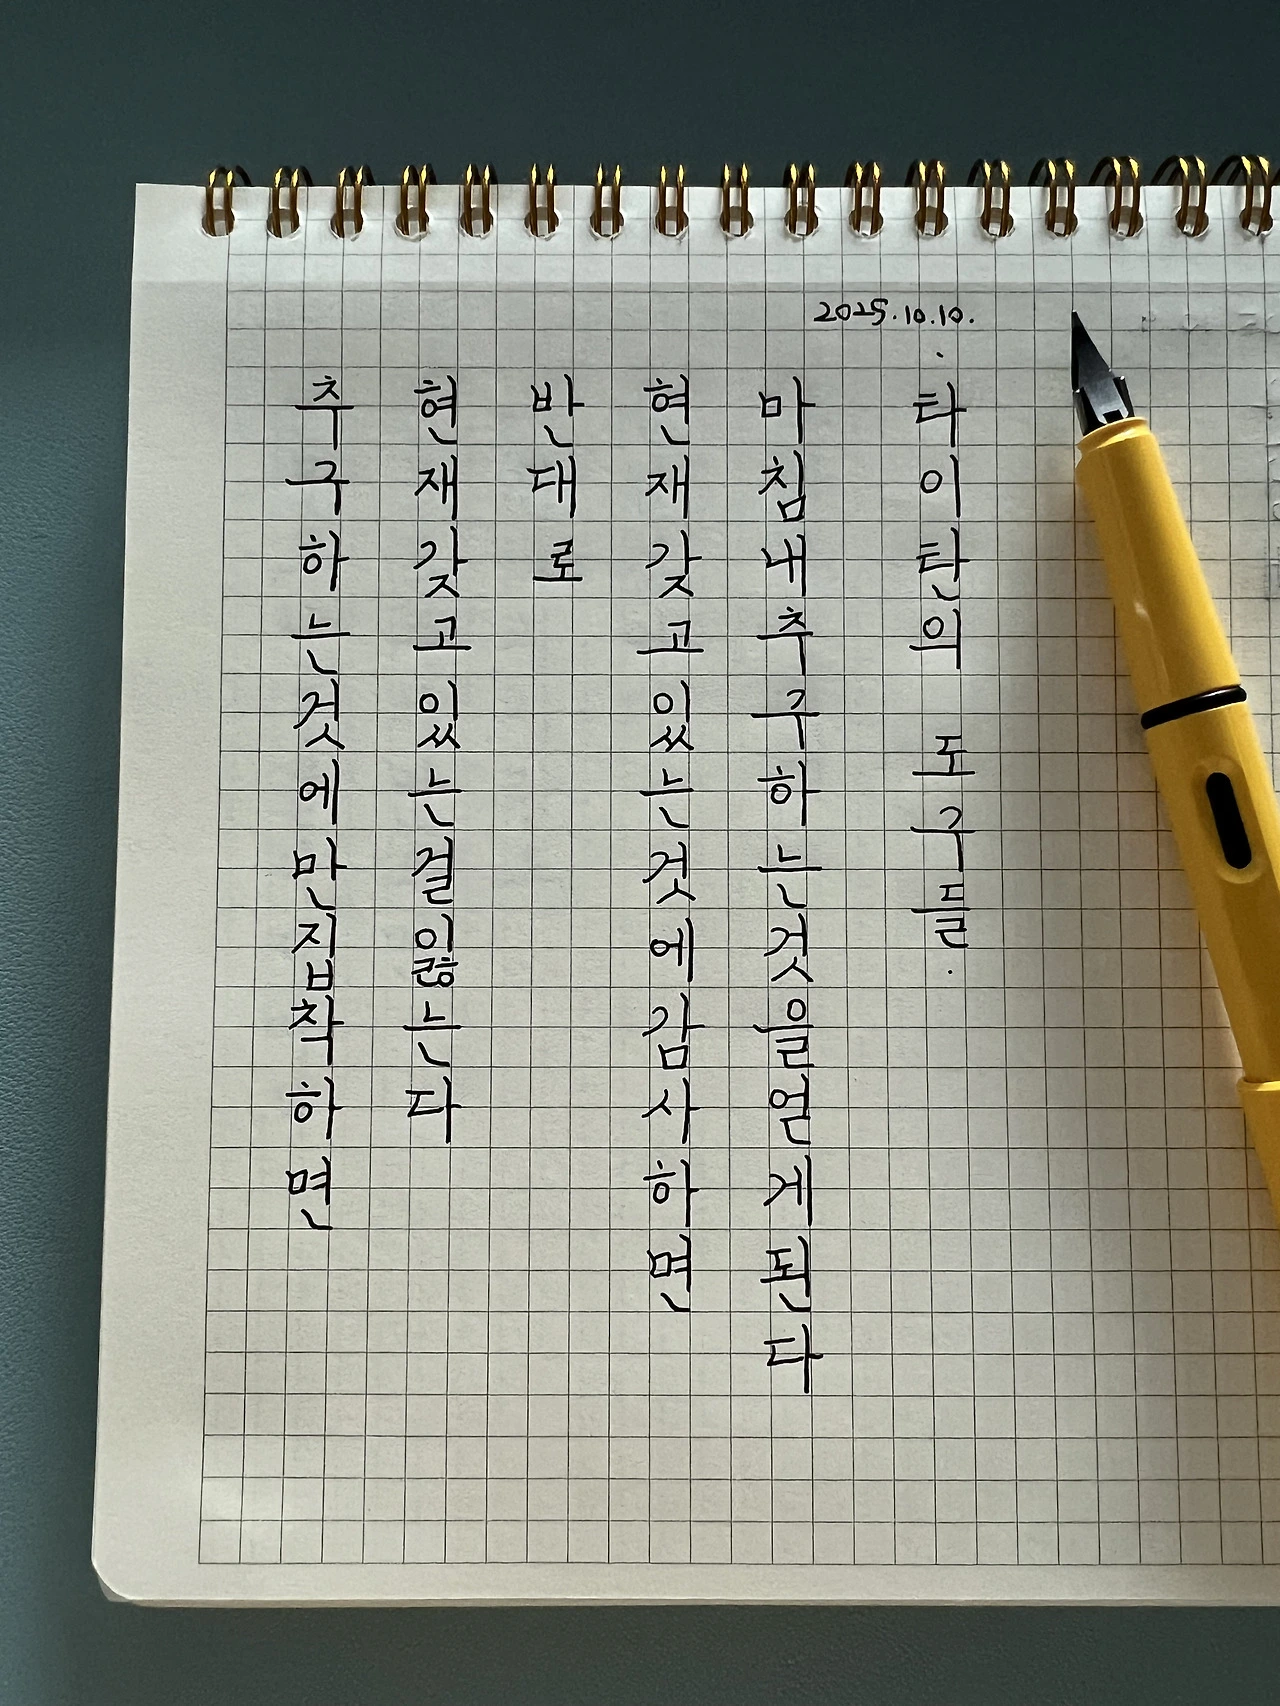 2025.10.10.
추구하는것에만집착하면
현재갖고있는걸잃는다
반대로
현재갖고있는것에감사하면
마침내추구하는것을얻게된다
·타이탄의 도구들·